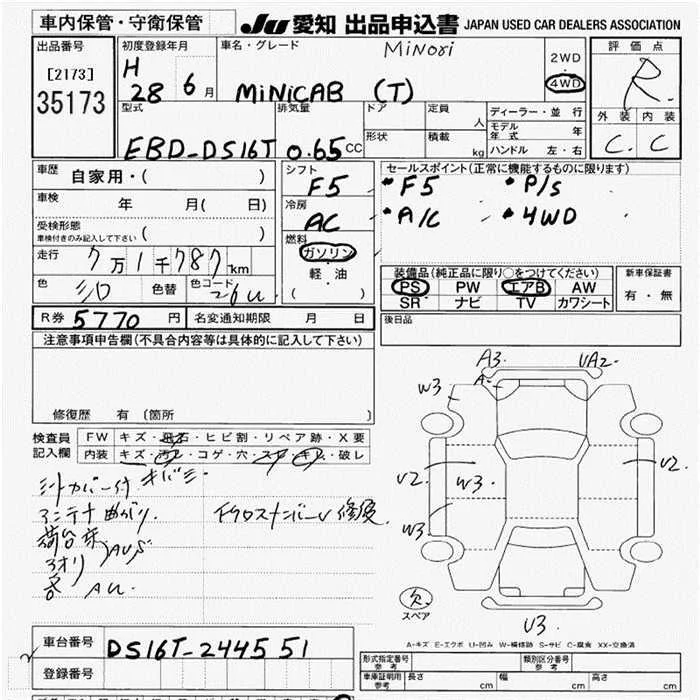 車内保管・守衛保管 JU 愛知 出品申込書 JAPAN USED CAR DEALERS ASSOCIATION
出品番号 初度登録年月 車名・グレード MiNori 2WD・4WD 評価点
[2173] H 28 6月 MiNiCAB (T) R
35173 外装 内装
型式 排気量 ドア 定員 人 ディーラー・並行 C. C
形状 積載 kg モデル年式 年
EBD-DS16T 0.65 CC ハンドル 左・右
車歴 自家用・( ) シフト F5 セールスポイント(正常に機能するものに限ります)
・F5 ・P/S
車検 年 月( 日) 冷房 AC ・A/C ・4WD
受検形態
車検付きのみ記入して下さい ( )
燃料 ガソリン・軽油 ( )
走行 7万1千787km
装備品(純正品に限り○をつけてください) 新車保証書
色 シロ 色替 色コード 26U PS PW エアB AW 有・無
SR ナビ TV カワシート
R券 5770円 名変通知期限 月 日 後日品
注意事項申告欄(不具合内容等は具体的に記入して下さい)
修復歴 有 〔箇所 〕
検査員記入欄 FW キズ・飛石・ヒビ割・リペア跡・X要
内装 キズ・汚レ・コゲ・穴・スレ・キレ・破レ
キバミ
シートカバー付
アンテナ曲がり. FクロスメンバーU 修復
荷台床
アオリ AUS
AU
A3. UA2
W3 A
U2. W3. U2.
W3
欠
スペア
U3
A-キズ E-エクボ U-凹ミ W-補修跡 S-サビ C-腐食 XX-交換済
車台番号 DS16T-244551
登録番号
形式指定番号 参考 類別区分番号 参考
車庫証明用 参考 長さ cm 幅 cm 高さ cm